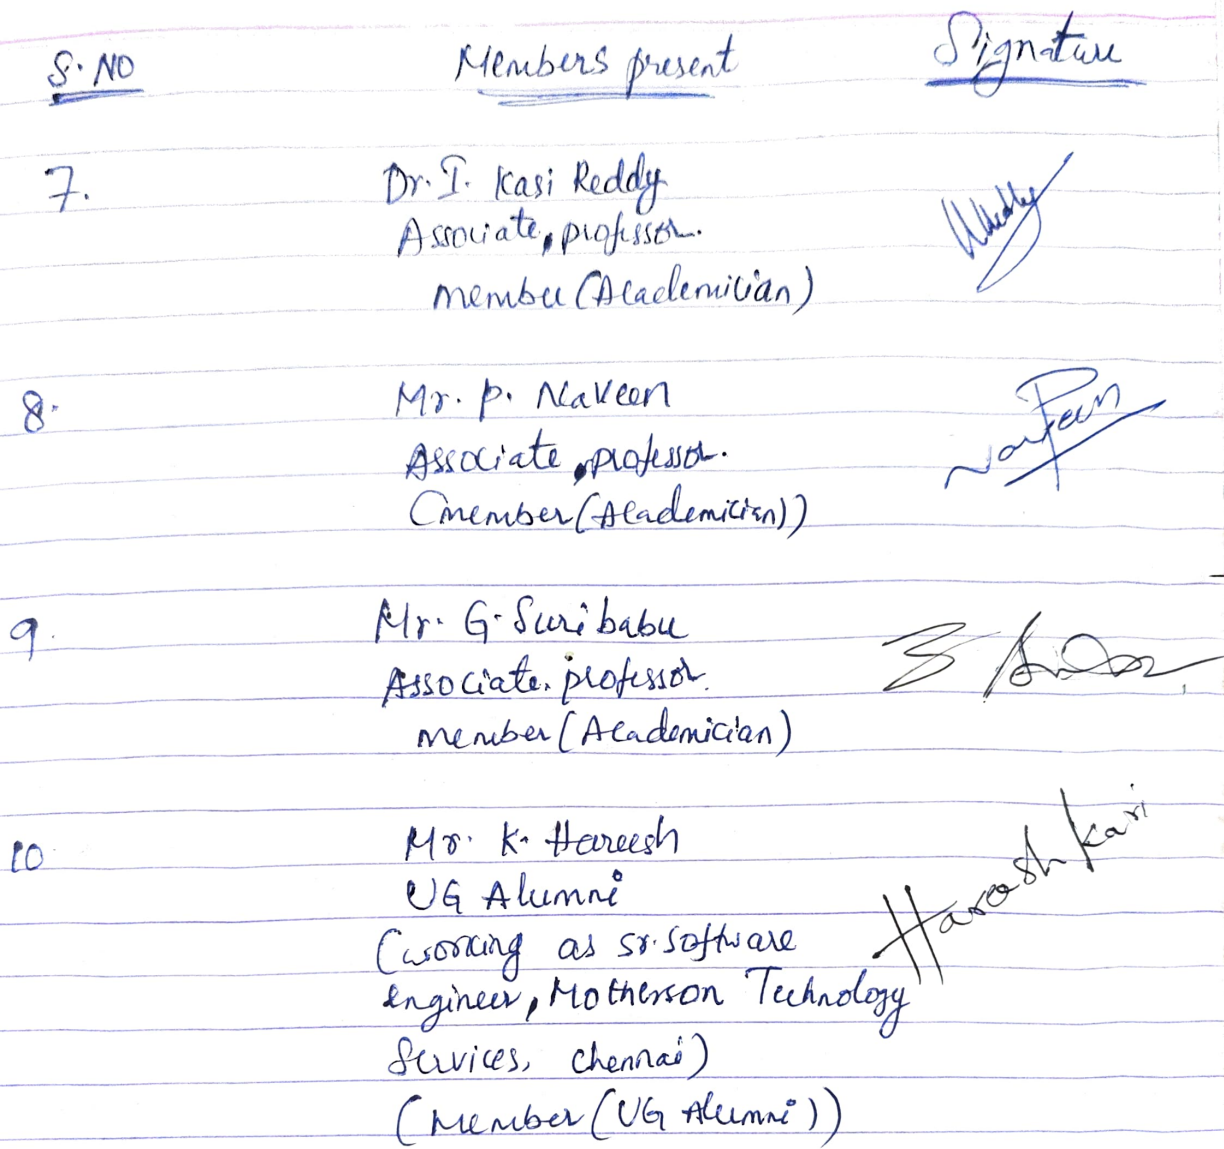 S.NO Members present Signature
7. Dr. I. Kasi Reddy
Associate, professor.
member (Academician)
8. Mr. P. Naveen
Associate, professor.
(member (Academician))
Naveen
9. Mr. G. Suribabu
Associate, professor.
member (Academician)
10 Mr. K. Hareesh
UG Alumni
(working as sr. software
engineer, Motherson Technology
Services, chennai)
(Member (UG Alumni))
Hareesh Kari